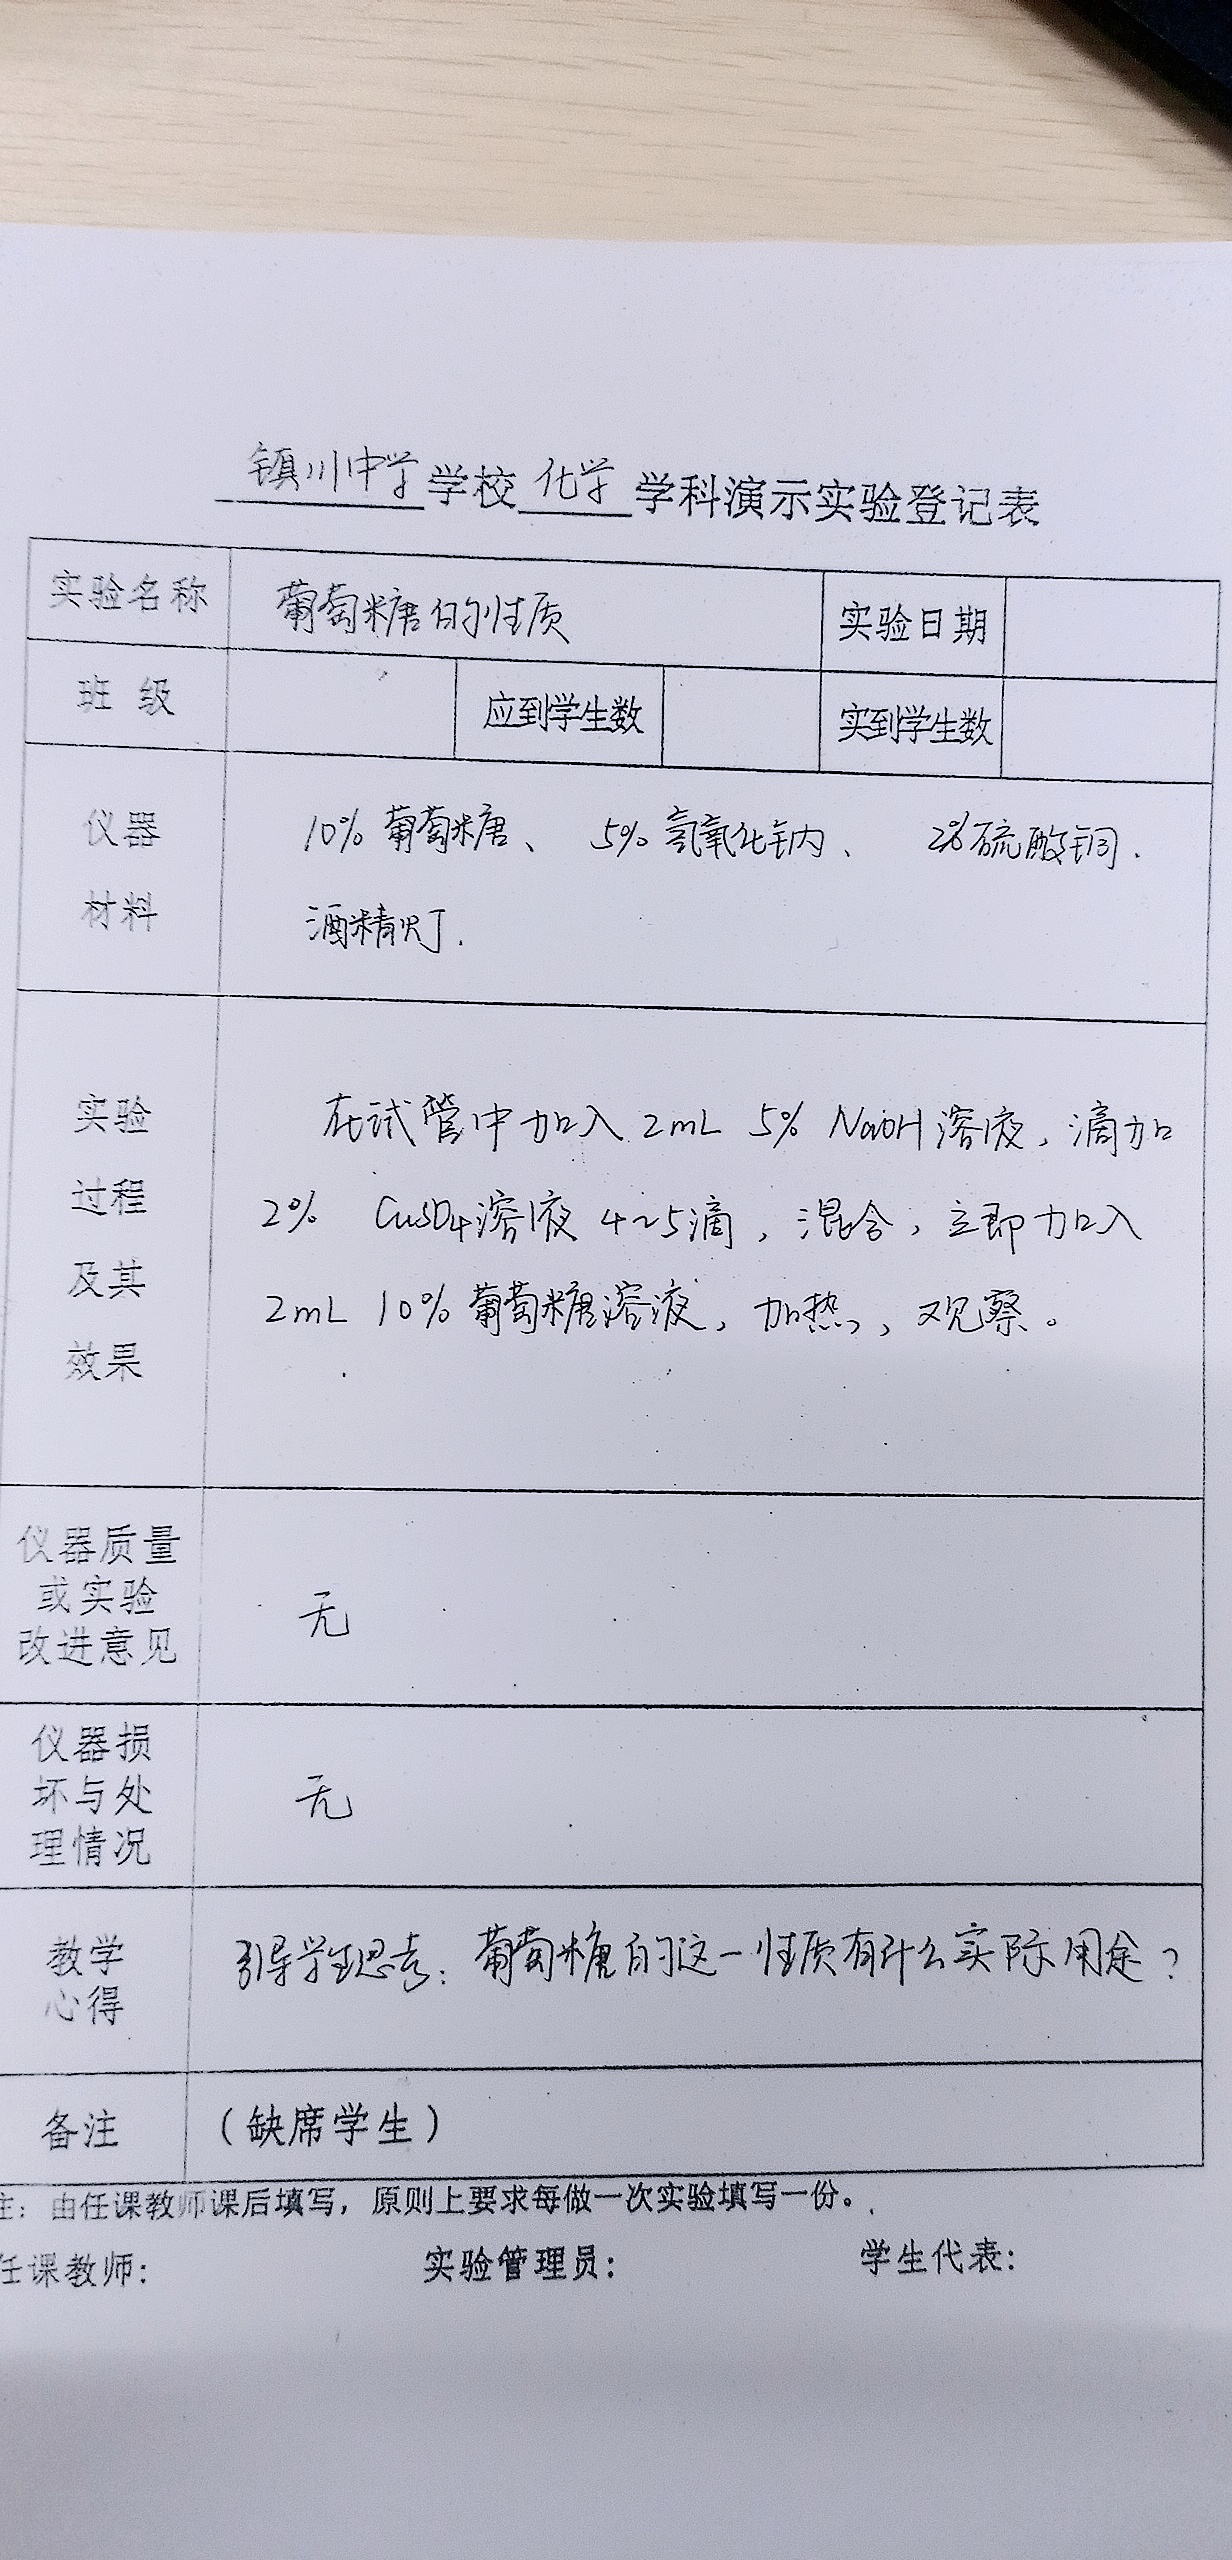 镇川中学学校化学学科演示实验登记表
实验名称 葡萄糖的性质 实验日期
班级 应到学生数 实到学生数
仪器 10%葡萄糖、 5%氢氧化钠、 2%硫酸铜.
材料 酒精灯.
实验 在试管中加入2mL 5% NaOH溶液,滴加
过程 2% CuSO4溶液4~5滴,混合,立即加入
及其 2mL 10%葡萄糖溶液,加热,观察。
效果
仪器质量
或实验 无
改进意见
仪器损
坏与处 无
理情况
教学 引导学生思考:葡萄糖的这一性质有什么实际用途?
心得
备注 (缺席学生)
注:由任课教师课后填写,原则上要求每做一次实验填写一份。
任课教师: 实验管理员: 学生代表: